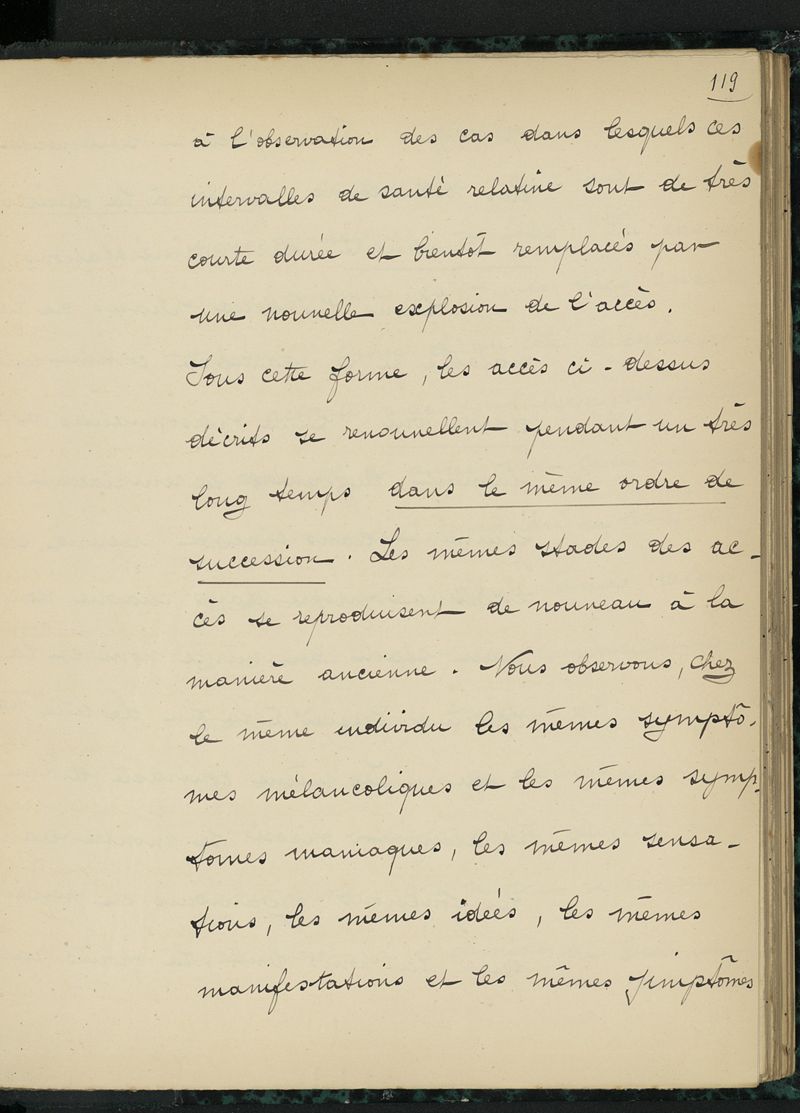 119
à l'observation des cas dans lesquels ces
intervalles de santé relative sont de très
courte durée et bientôt remplacés par
une nouvelle explosion de l'accès.
Sous cette forme, les accès ci-dessus
décrits se renouvellent pendant un très
long temps dans le même ordre de
succession. Les mêmes stades des ac-
cès se reproduisent de nouveau à la
manière ancienne. Nous observons, chez
le même individu les mêmes symptô-
mes mélancoliques et les mêmes symp-
tomes maniaques, les mêmes sensa-
tions, les mêmes ideés, les mêmes
manifestations et les mêmes simptômes